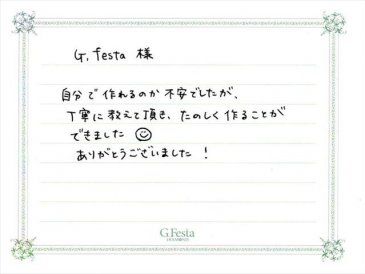 G. festa 様
自分で作れるのか不安でしたが、
丁寧に教えて頂き、たのしく作ることが
できました ☺
ありがとうございました！
G.Festa
DIAMONDS